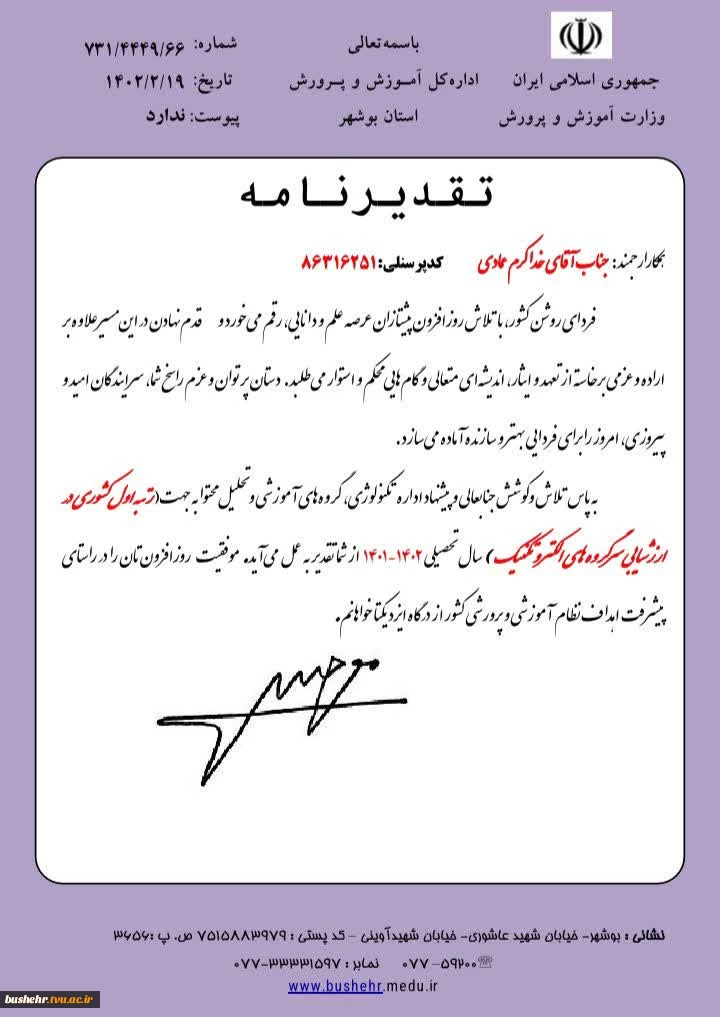 باسمه تعالی
جمهوری اسلامی ایران
وزارت آموزش و پرورش
اداره کل آموزش و پرورش
استان بوشهر
شماره: ۷۳۱/۴۴۴۹/۶۶
تاریخ: ۱۴۰۲/۲/۱۹
پیوست: ندارد
تقدیرنامه
همکار ارجمند: جناب آقای خداکرم عمادی کدپرسنلی: ۸۶۳۱۶۲۵۱
فردای روشن کشور، با تلاش روزافزون پیشتازان عرصه علم و دانایی، رقم می خورد و قدم نهادن در این مسیر علاوه بر
اراده و عزمی برخاسته از تعهد و ایثار، اندیشه ای متعالی و گام هایی محکم و استوار می طلبد. دستان پرتوان و عزم راسخ شما، سرایندگان امید و
پیروزی، امروز را برای فردایی بهتر و سازنده آماده می سازد.
به پاس تلاش و کوشش جنابعالی و پیشنهاد اداره تکنولوژی، گروه های آموزشی و تحلیل محتوا به جهت (رتبه اول کشوری در
ارزشیابی سرگروه های الکتروتکنیک) سال تحصیلی ۱۴۰۲-۱۴۰۱ از شما تقدیر به عمل می آید. موفقیت روزافزون تان را در راستای
پیشرفت اهداف نظام آموزشی و پرورشی کشور از درگاه ایزد یکتا خواهانم.
نشانی : بوشهر- خیابان شهید عاشوری- خیابان شهیدآوینی – کد پستی : ۷۵۱۵۸۸۳۹۷۹ ص. پ :۳۶۵۶
☏۵۹۲۰۰–۰۷۷ نمابر : ۳۳۳۳۱۵۹۷-۰۷۷
www.bushehr.medu.ir
bushehr.tvu.ac.ir